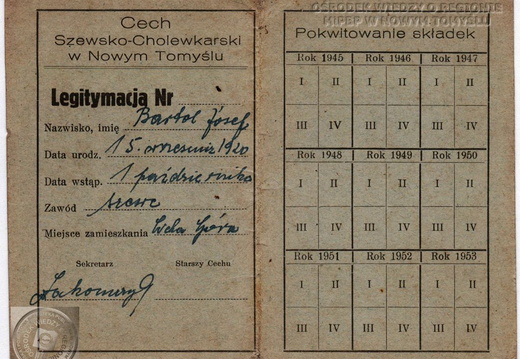 Cech
Szewsko-Cholewkarski
w Nowym Tomyślu
Legitymacja Nr
Nazwisko, imię Bartol Józef
Data urodz. 15 wrzesnia 1920
Data wstąp. 1 październik
Zawód szewc
Miejsce zamieszkania Góra
Sekretarz Starszy Cechu
OŚRODEK WIEDZY O REGIONIE
MIPBP W NOWYM TOMYŚLU
Pokwitowanie składek
Rok 1945 Rok 1946 Rok 1947
I II I II I II
III IV III IV III IV
Rok 1948 Rok 1949 Rok 1950
I II I II I II
III IV III IV III IV
Rok 1951 Rok 1952 Rok 1953
I II I II I II
III IV III IV III IV